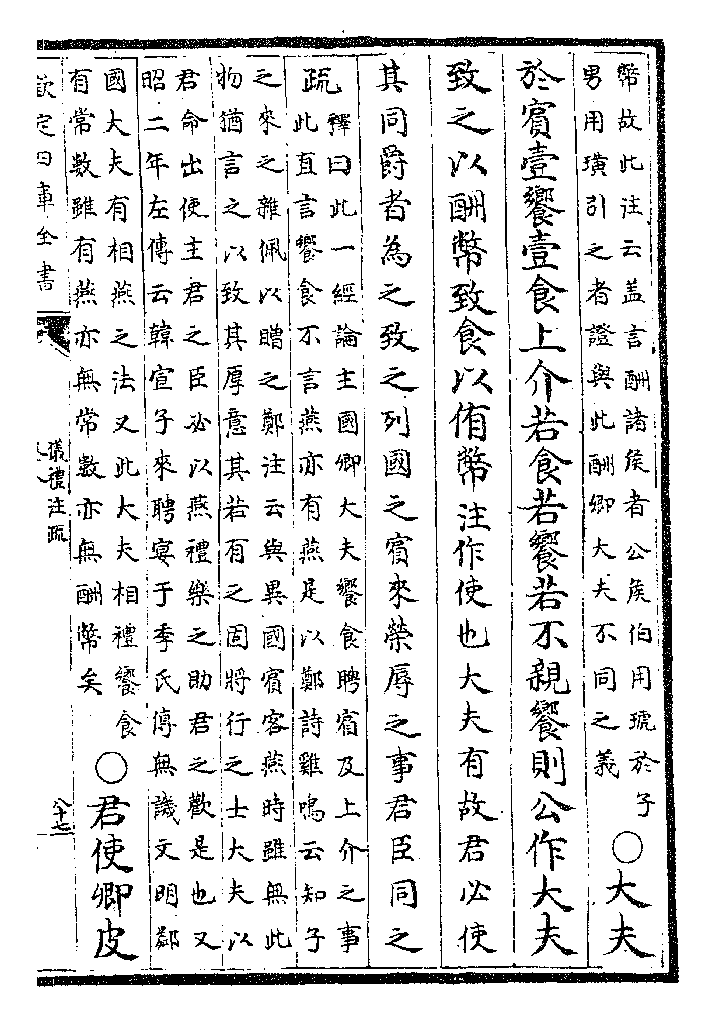 幣故此注云盖言酬諸侯者公侯伯用琥於子
男用璜引之者證與此酬卿大夫不同之義
○大夫
於賓壹饗壹食上介若食若饗若不親饗則公作大夫
致之以酬幣致食以侑幣注作使也大夫有故君必使
其同爵者為之致之列國之賓來榮辱之事君臣同之
疏釋曰此一經論主國卿大夫饗食聘賓及上介之事
此直言饗食不言燕亦有燕是以鄭詩雞鳴云知子
之來之雜佩以贈之鄭注云與異國賓客燕時雖無此
物猶言之以致其厚意其若有之固將行之士大夫以
君命出使主君之臣必以燕禮樂之助君之歡是也又
昭二年左傳云韓宣子來聘宴于季氏傳無譏文明鄰
國大夫有相燕之法又此大夫相禮饗食
有常數雖有燕亦無常數亦無酬幣矣
○君使卿皮
欽定四庫全書
儀禮注疏
八十七